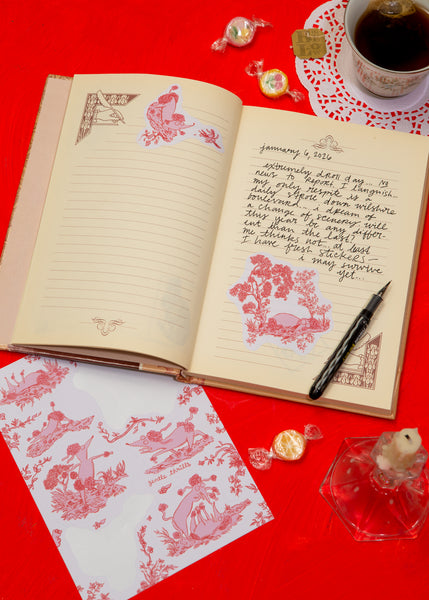 january 6, 2026
extremely droll day... no
news to report. I languish...
my only respite is a
daily stroll down wilshire
boulevard... i dream of
a change of scenery. will
this year be any differ-
ent than the last?
me thinks not. at least
I have fresh stickers—
i may survive
yet...